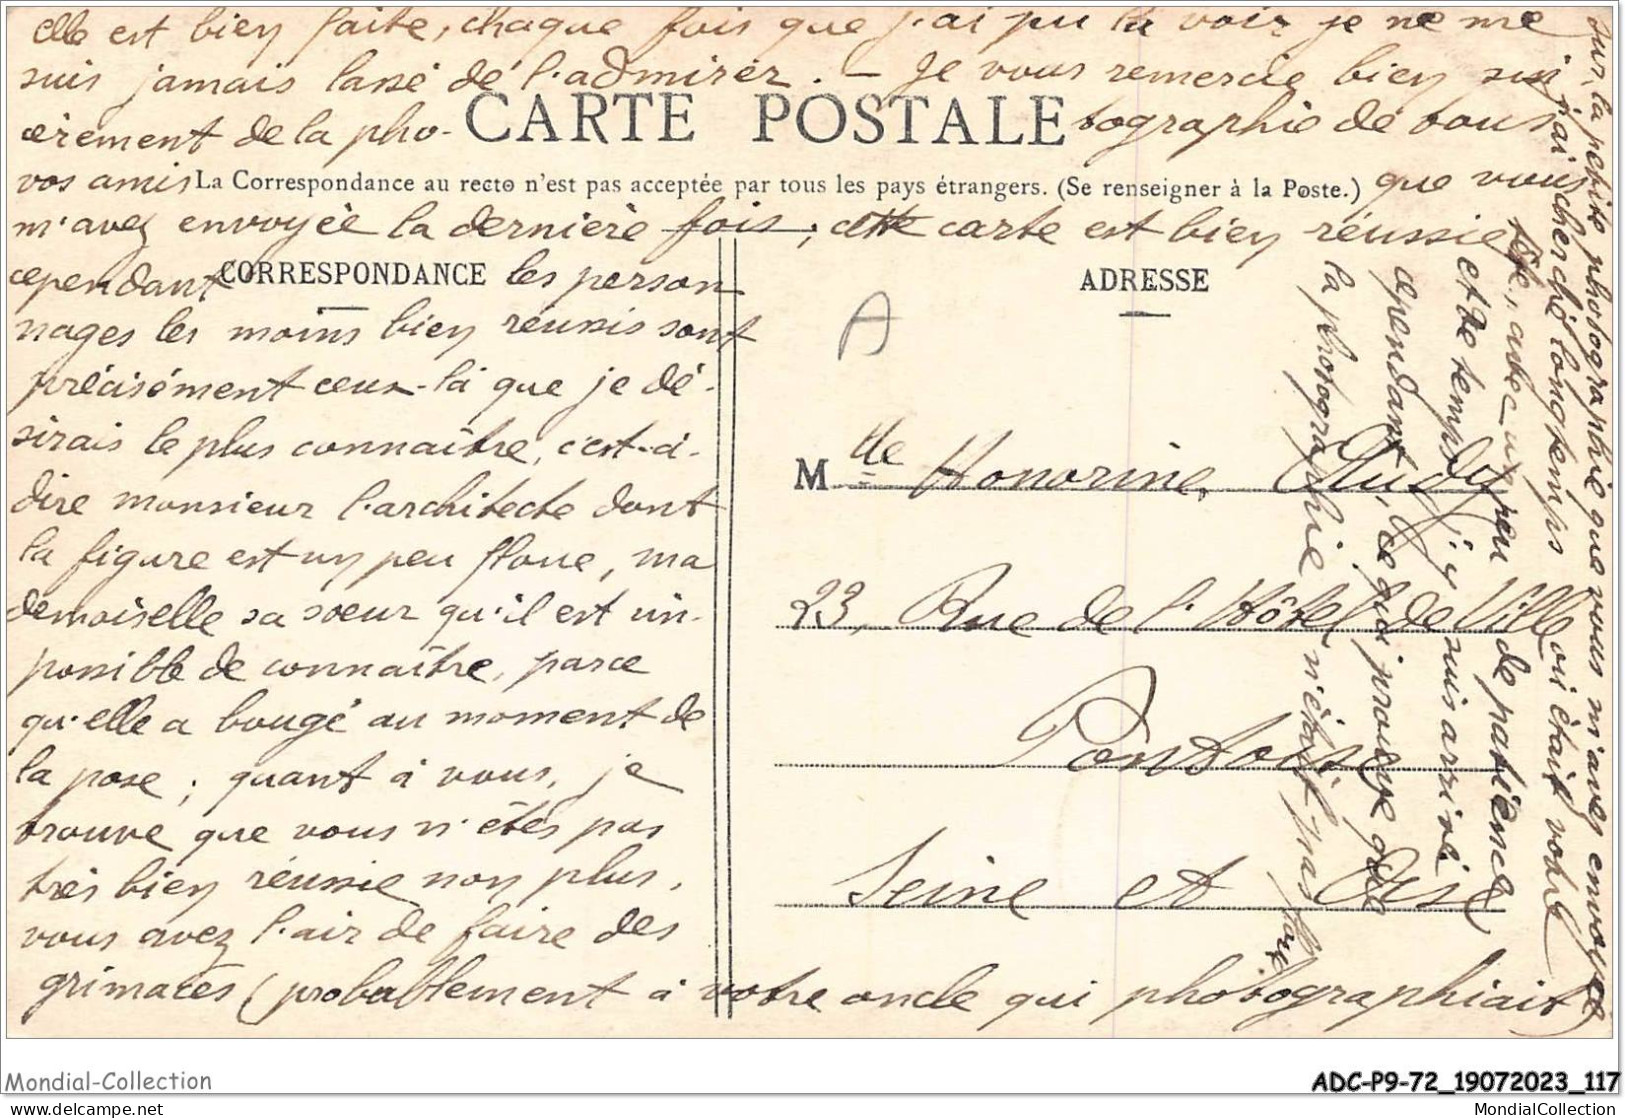 elle est bien faite, chaque fois que j'ai pu la voir je ne me
suis jamais lassé de l'admirer. — Je vous remercie bien sin
cèrement de la pho-
CARTE POSTALE
tographie de vous
vos amis
La Correspondance au recto n'est pas acceptée par tous les pays étrangers. (Se renseigner à la Poste.)
que vous
m'avez envoyée la dernière fois; cette carte est bien réussie
cependant
CORRESPONDANCE
les person
nages les moins bien réussis sont
précisément ceux-là que je dé-
sirais le plus connaître, c'est-à-
dire monsieur l'architecte dont
la figure est un peu floue, ma
demoiselle sa soeur qu'il est im-
possible de connaître, parce
qu'elle a bougé au moment de
la pose; quant à vous, je
trouve que vous n'êtes pas
très bien réussie non plus,
vous avez l'air de faire des
grimaces (probablement à votre oncle qui photographiait)
Sur la petite photographie que vous m'avez envoyée
j'ai cherché longtemps où était votre
tête, avec un peu de patience
et de temps j'y suis arrivé
cependant, ce qui prouve que
la photographie n'était pas floue
ADRESSE
A
Mlle Honorine
23, Rue de l'Hôtel de Ville
Pontoise
Seine et Oise
Mondial-Collection
ADC-P9-72_19072023_117
delcampe.net
MondialCollection